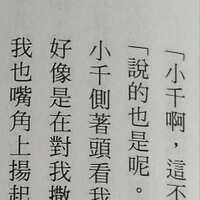 「小千啊，這不
「說的也是呢。
小千側著頭看我
好像是在對我撒
我也嘴角上揚起